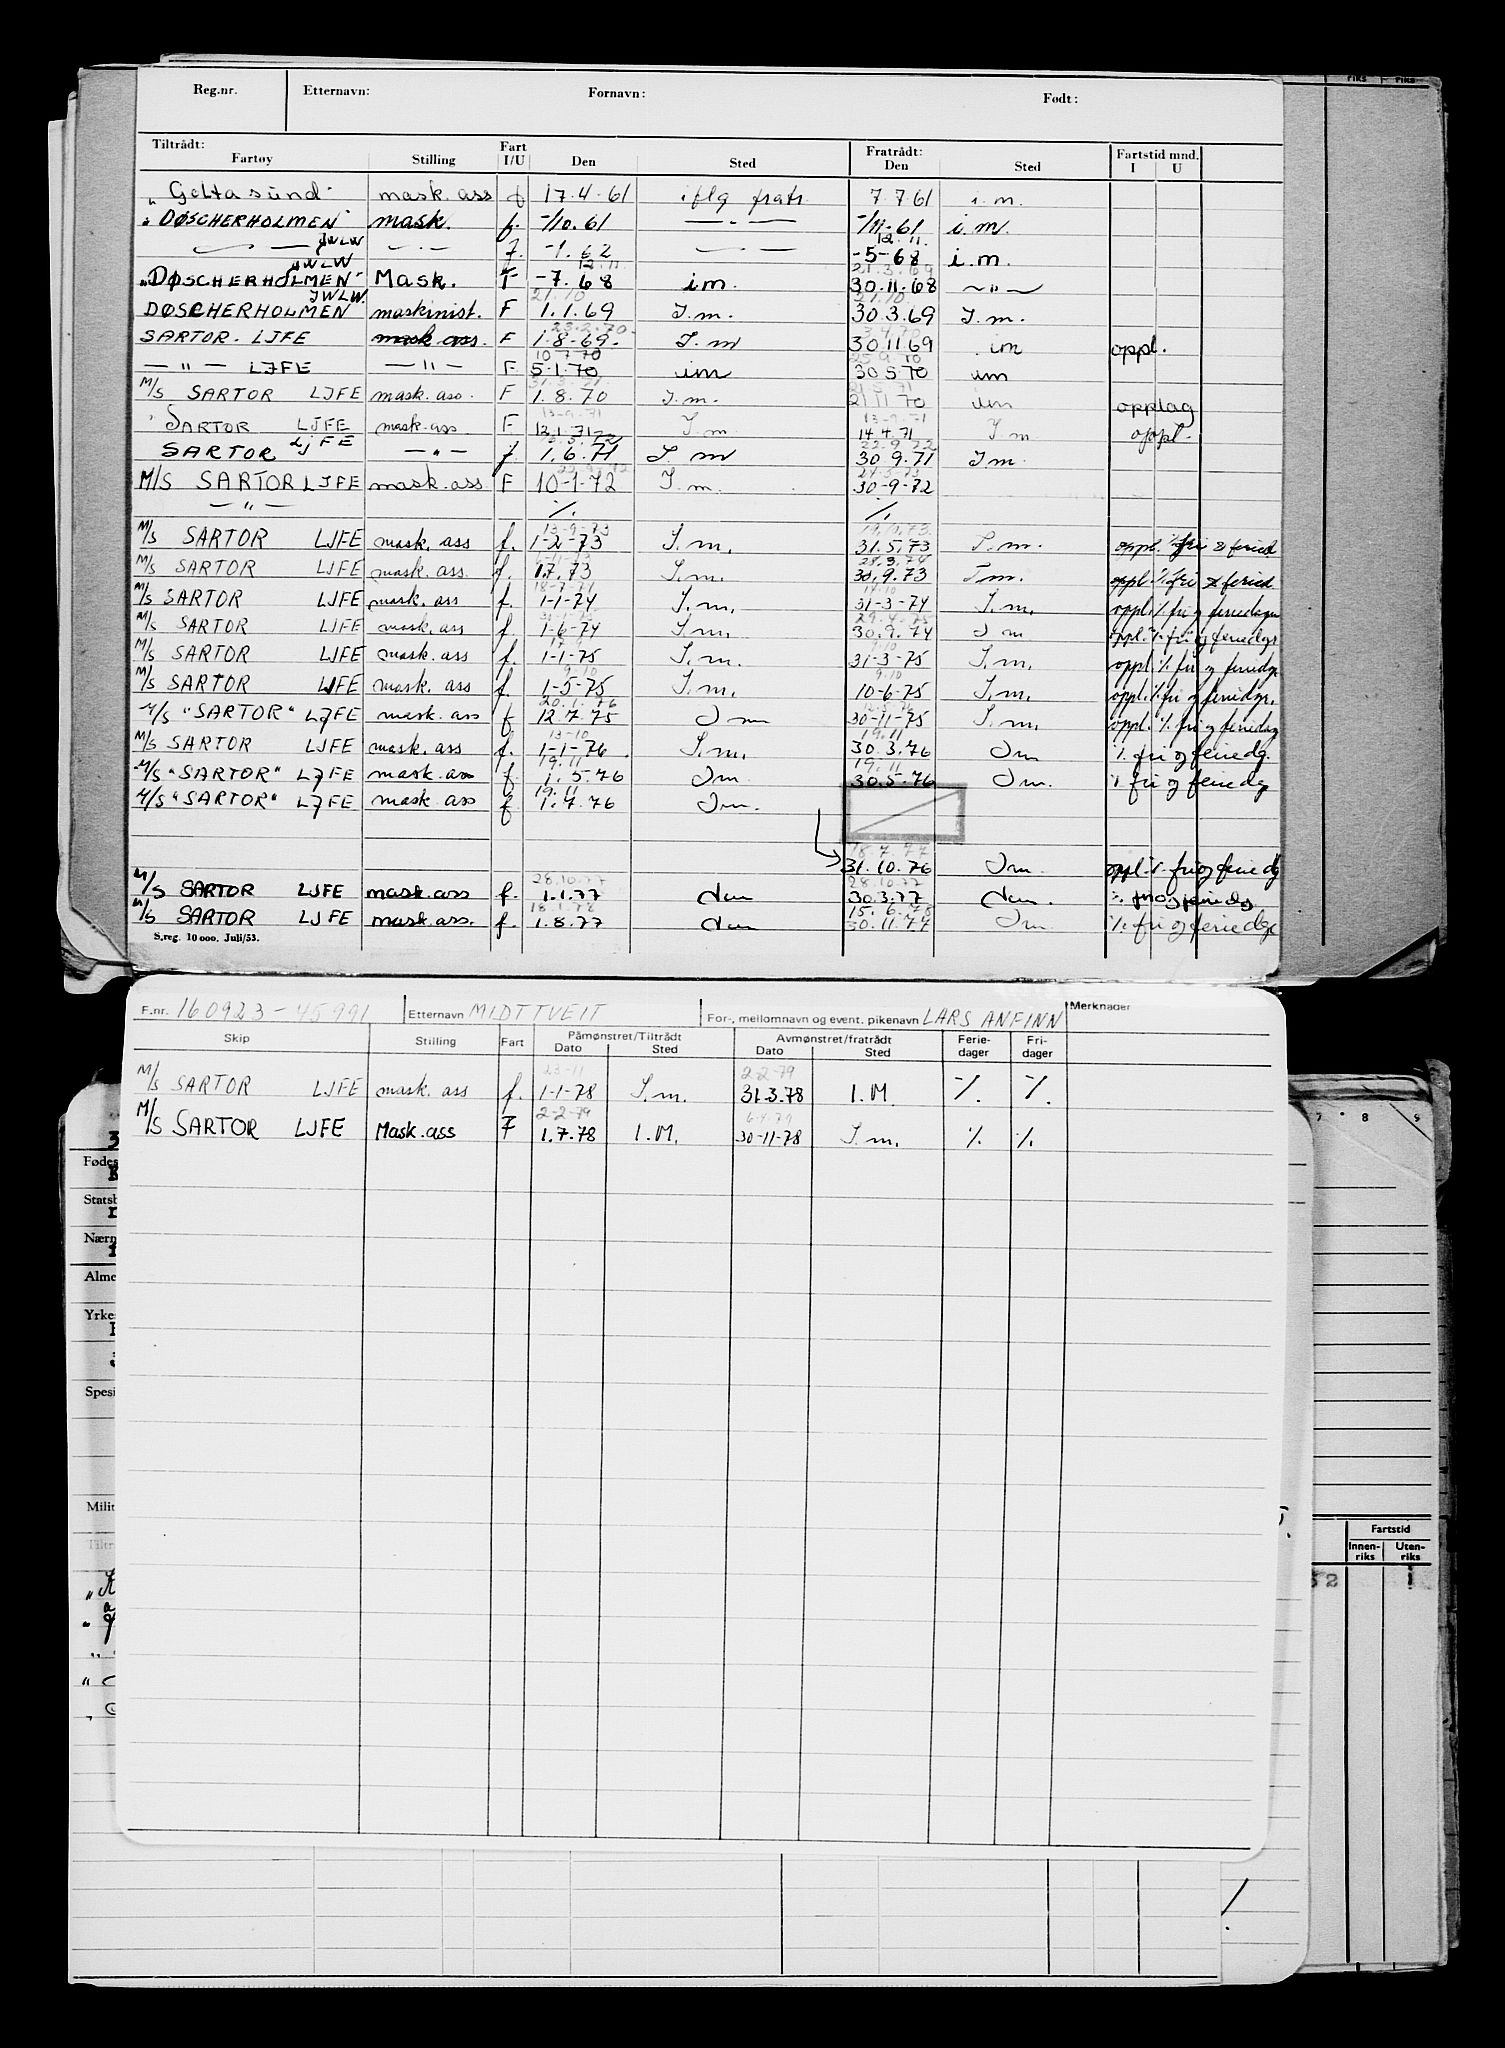 Reg.nr. Etternavn: Fornavn: Født:
Tiltrådt: Fartøy Stilling Fart I/U Den Sted Fratrådt: Den Sted Fartstid mnd. I U
"Geltasund" mask. ass f 17.4.61 iflg fratr. 7.7.61 i.m.
"DØSCHERHOLMEN" mask. f. -/10.61 — " — -/11-61 i.m.
— " — JWLW — " — f. -1.62 — " — 12.11. -5-68 i.m.
"DØSCHERHOLMEN" JWLW Mask. F 12.11. -7.68 i.m. 21.3.69 30.11.68 — " —
DØSCHERHOLMEN JWLW. maskinist. F 21.10 1.1.69 I.m. 21.10. 30.3.69 I.m.
SARTOR. LJFE mask. ass. F 23.2.70. 1.8-69. I.m 3.4.70 30.11.69 im oppl.
— " — LJFE — " — F 10.7.70 5.1.70 im 25.9.70 30.5.70 im
M/S SARTOR LJFE mask. ass. F 1.8.70 I.m. 21.5.71 21.11.70 im opplag
" SARTOR LJFE mask. ass F 13-9-71 12.1.71 I.m 13-9-71 14.4.71 I m oppl.
SARTOR LJFE — " — f. 1.6.71 I. m 22.9.72 30.9.71 I m.
M/S SARTOR LJFE mask. ass F 10-1-72 I.m. 30-9-72
— " — %. %.
M/S SARTOR LJFE mask. ass f. 13-9-73 1-2-73 I.m. 19.10.73 31.5.73 I.m. oppl. % fri & feried
M/S SARTOR LJFE mask. ass. f. 1.7.73 I.m. 30.9.73 I.m. oppl. % fri & feried.
M/S SARTOR LJFE mask. ass f. 1-1-74 I.m. 31-3-74 I.m. oppl. % fri og feriedager
M/S SARTOR LJFE mask. ass f. 1-6-74 I.m. 29.4.75 30.9.74 I m oppl. % fri og feriedgr.
M/S SARTOR LJFE mask. ass f. 1-1-75 I.m. 9.10 31-3-75 I.m. oppl. % fri og feriedgr
M/S SARTOR LJFE mask. ass f. 9.10 1-5-75 I.m. 9.10 10-6-75 I.m. oppl. % fri og feriedgr.
M/S "SARTOR" LJFE mask. ass f 20.1.76 12.7.75 I m 30-11-75 I.m. oppl. % fri og feriedag
M/S SARTOR LJFE mask. ass f. 13-10 1-1-76 I.m. 19.11 30.3.76 I m % fri og feriedg.
M/S "SARTOR" LJFE mask. ass f. 19.11 1.5.76 I m. 19.11 30.5.76 I m. % fri og feriedg
M/S "SARTOR" LJFE mask. ass f 19.11 1.7.76 I m.
18.7.77 31.10.76 I m. oppl. % fri og feriedg
M/S SARTOR LJFE mask. ass f. 28.10.77 1.1.77 I m 28.10.77 30.3.77 I m. % fri og feriedg
M/S SARTOR LJFE mask. ass. f. 1.8.77 I m 15.6.78 30.11.77 I m. % fri og feriedgr
S.reg. 10 000. Juli/53.
F.nr. 160923-45991 Etternavn MIDTTVEIT For-, mellomnavn og event. pikenavn LARS ANFINN Merknader
Skip Stilling Fart Påmønstret/Tiltrådt Dato Sted Avmønstret/fratrådt Dato Sted Ferie-dager Fri-dager
M/S SARTOR LJFE mask. ass f. 23-11 1-1-78 I.m. 2-2-79 31.3.78 I.M. -%. -%.
M/S SARTOR LJFE Mask. ass F 2-2-79 1.7.78 I.M. 6.4.79 30-11-78 I.m. %. %.
Fødes
Statsb
Nærm
Alme
Yrke
Spesi
Milit
Tiltr
Fartstid
Innen-riks Uten-riks
52 1